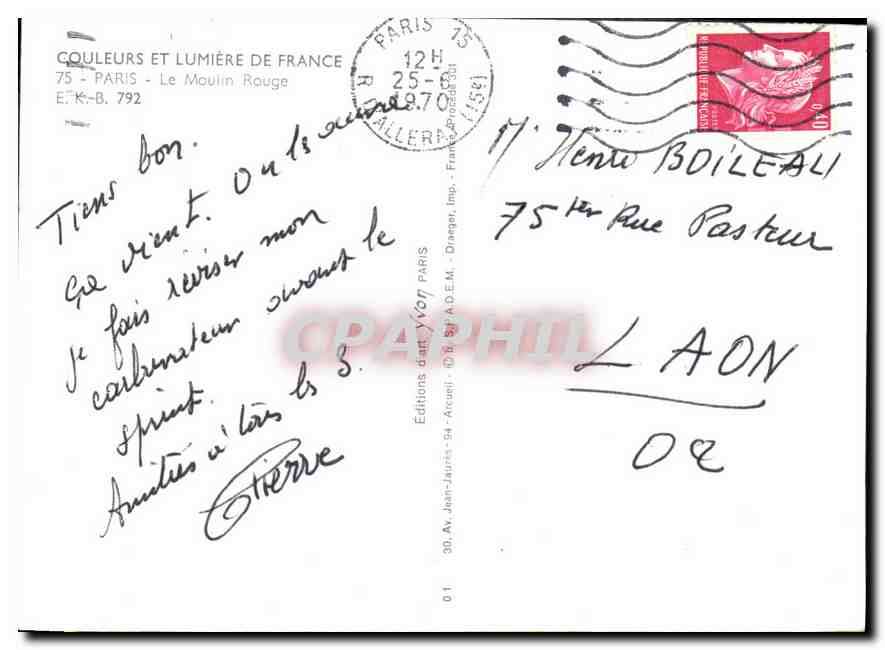 COULEURS ET LUMIÈRE DE FRANCE
75 - PARIS - Le Moulin Rouge
E. K.-B. 792
Tiens bon.
Ça vient. On la
je fais réviser mon
carburateur avant le
sprint.
Amitiés à tous les 3.
Pierre
Editions d'art yvon PARIS
30, Av. Jean-Jaurès - 94 - Arcueil - © by S.P.A.D.E.M. - Draeger, Imp. - France (Procédé 301
01
PARIS 15
12H
25-8
1970
R. ALLERAY (15e)
REPUBLIQUE-FRANÇAISE
0,40
postes
Mr Henri BOILEAU
75 ter Rue Pasteur
LAON
02
CPAPHIL